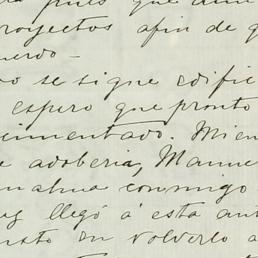 pues que
royectos afin de q
uerdo -
o se sigue edific
espero que pronto
cimentado. Mien
e adoberia, Manue
conmigo
llegó á esta ant
en volverlo a